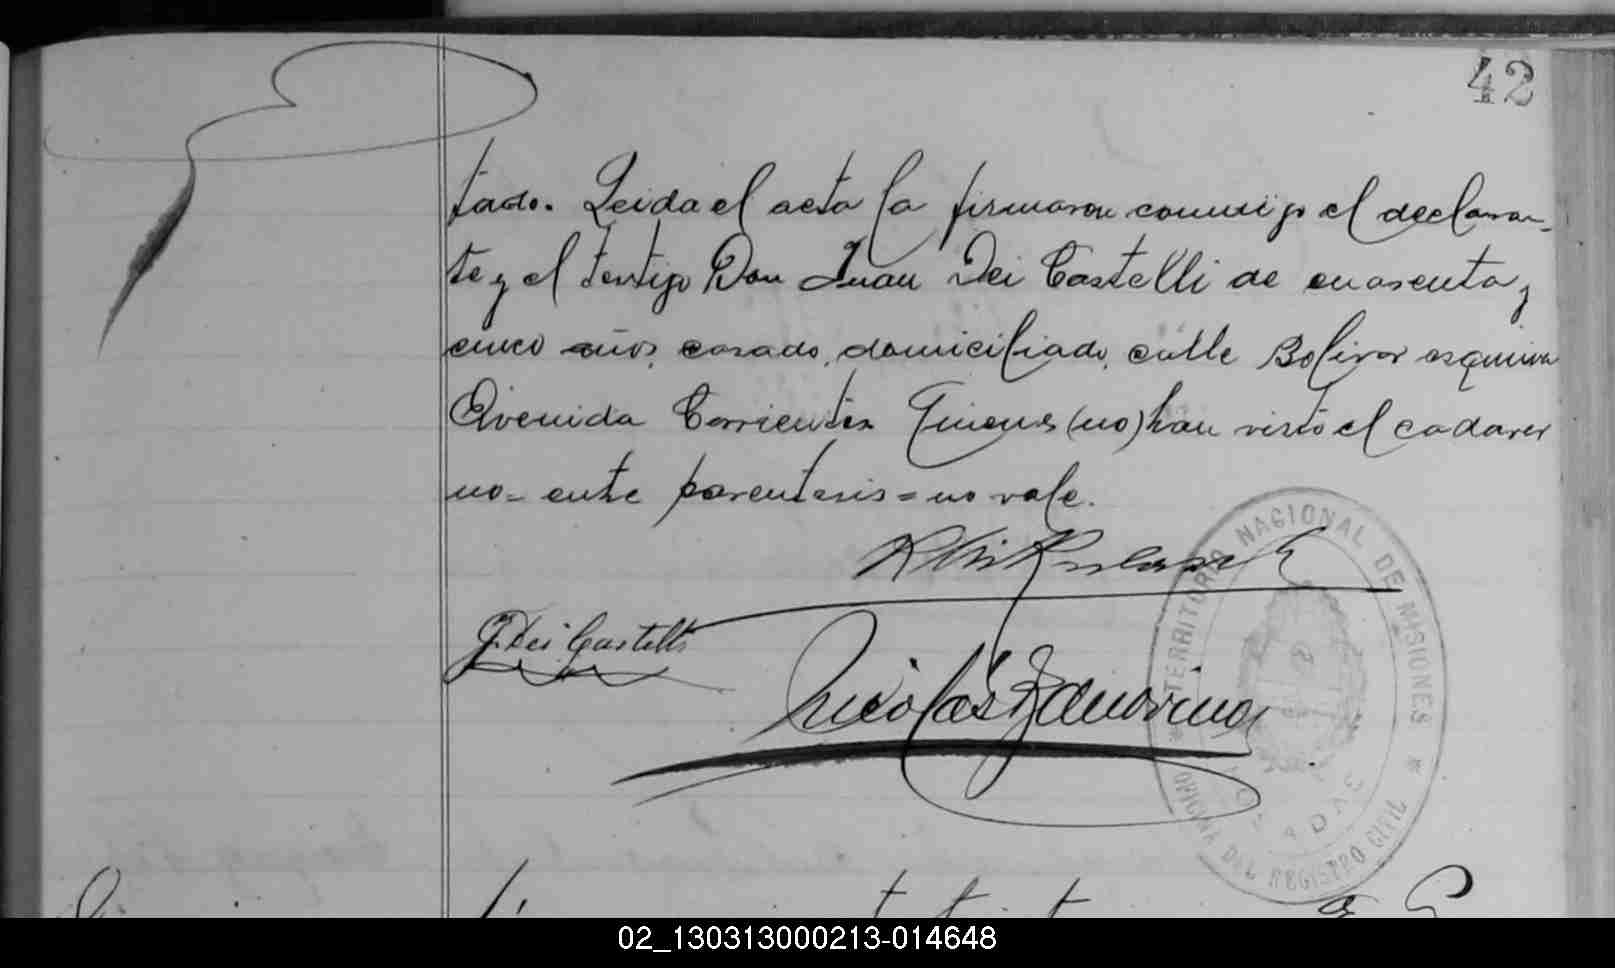 42
tado. Leida el acta la firmaron conmigo el declaran-
te y el testigo Don Juan Dei Castelli de cuarenta y
cinco años, casado, domiciliado, calle Bolivar esquina
Avenida Corrientes Quienes (no) han visto el cadaver
no - entre parentesis = no vale.
J. Dei Castelli
Nicolás
TERRITORIO NACIONAL DE MISIONES
* OFICINA DEL REGISTRO CIVIL *
POSADAS
02_130313000213-014648